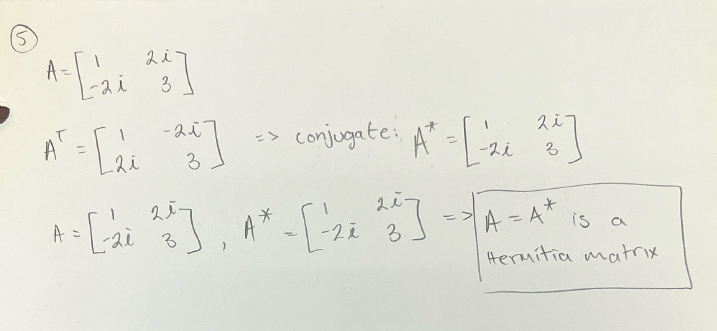 ⑤
A = [1 2i; -2i 3]
Aᵀ = [1 -2i; 2i 3] => conjugate: A* = [1 2i; -2i 3]
A = [1 2i; -2i 3], A* = [1 2i; -2i 3] => A = A* is a
Hermitia matrix